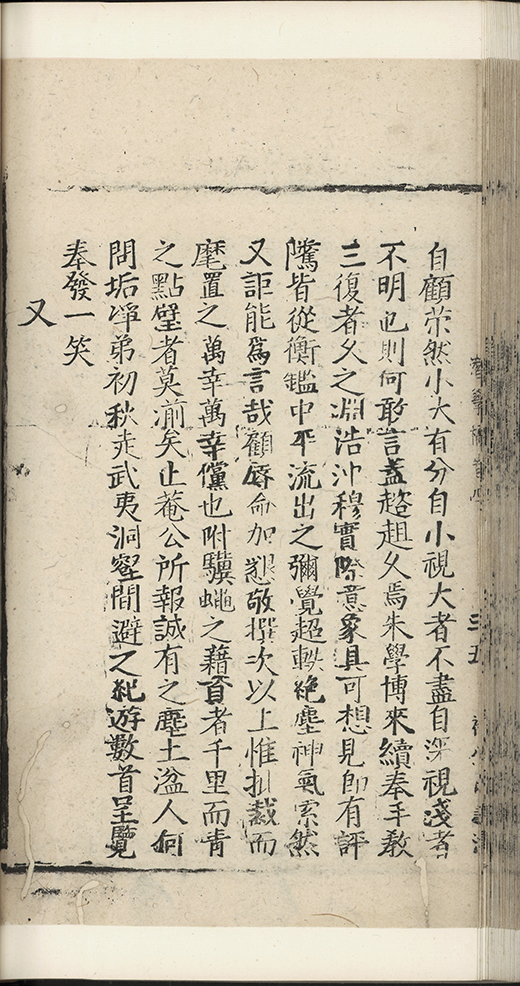 自顧茶然小大有分自小視大者不盡自深視淺者
不明也則何敢言葢趑趄久焉朱學博來續奉手教
三復者久之淵浩沖穆實際意象具可想見即有評
隲皆從衡鑑中平流出之彌覺超軼絶塵神氣索然
又詎能爲言哉顧辱命加懇敬撰次以上惟抶裁而
麾置之萬幸萬幸儻也附驥蠅之藉百者千里而青
之點璧者莫湔矣止菴公所報誠有之塵土湓人何
問垢淨弟初秋走武夷洞壑間避之紀遊數首呈覽
奉發一笑
又